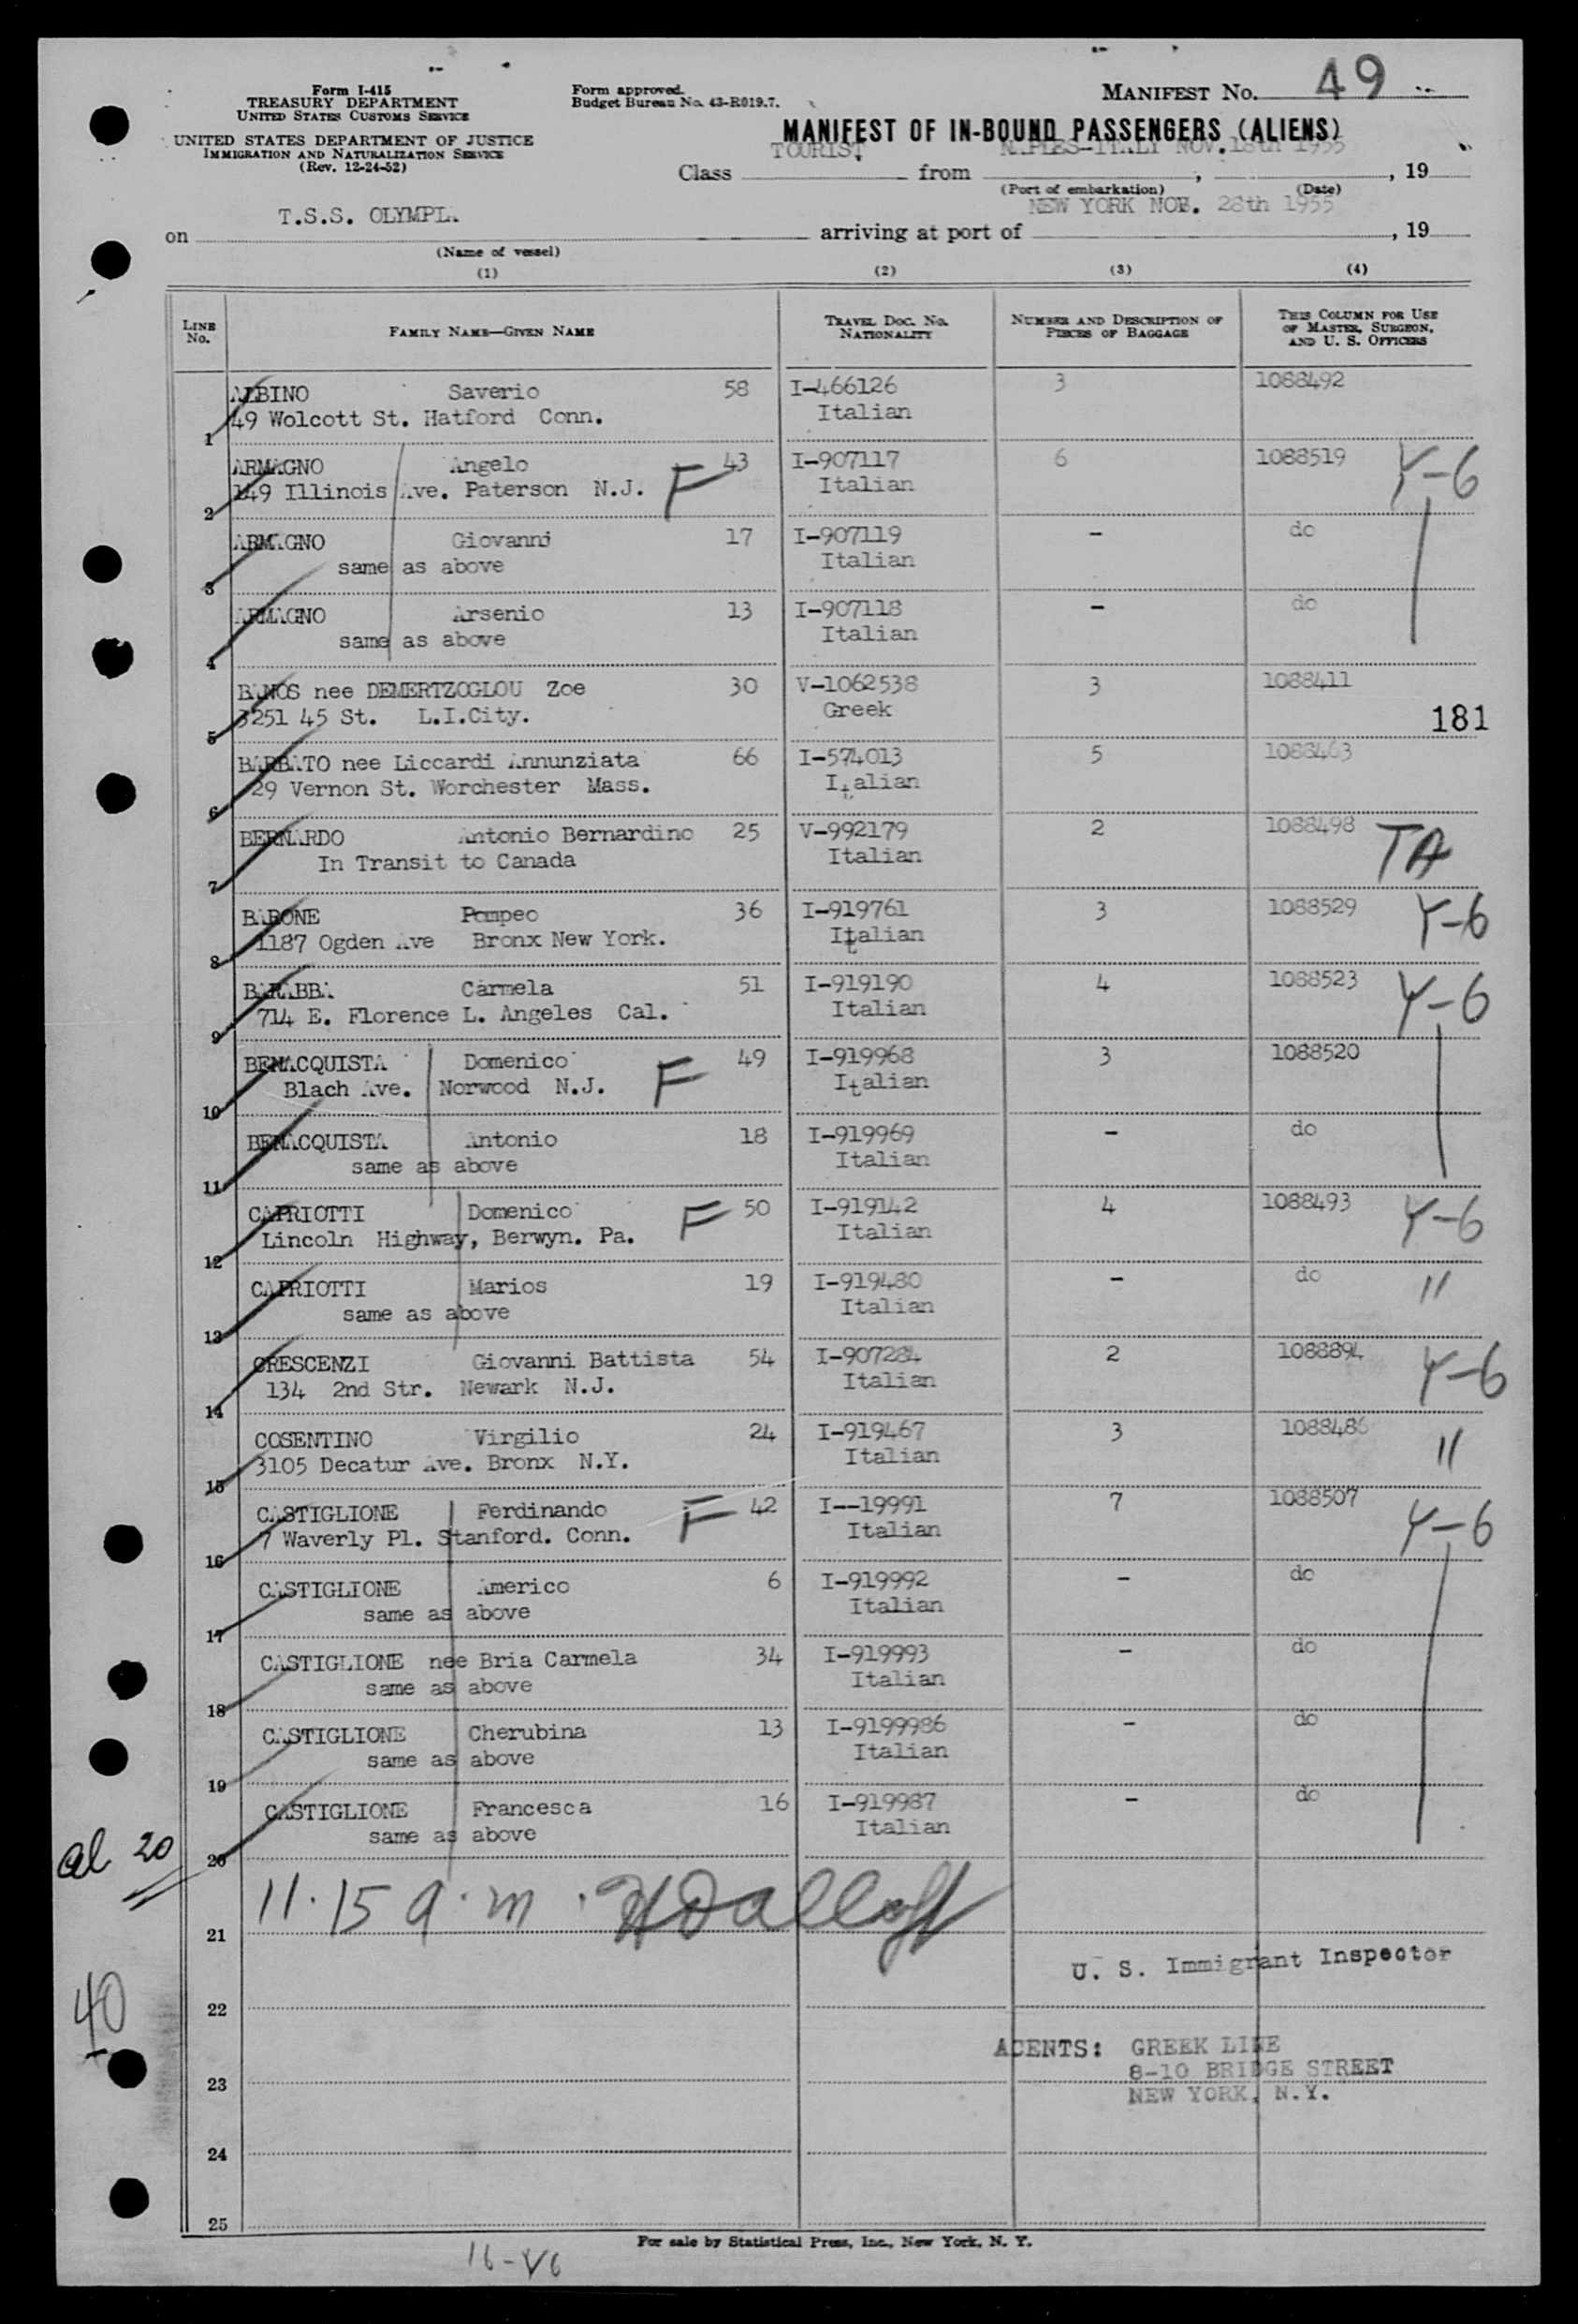 Form I-415
TREASURY DEPARTMENT
UNITED STATES CUSTOMS SERVICE
UNITED STATES DEPARTMENT OF JUSTICE
IMMIGRATION AND NATURALIZATION SERVICE
(Rev. 12-24-52)
Form approved.
Budget Bureau No. 43-R019.7.
MANIFEST NO. 49
MANIFEST OF IN-BOUND PASSENGERS (ALIENS)
Class TOURIST from NAPLES-ITALY NOV. 18th 1955, 19
(Port of embarkation) (Date)
on T.S.S. OLYMPIA arriving at port of NEW YORK NOV. 28th 1955, 19
(Name of vessel)
(1) (2) (3) (4)
LINE NO. FAMILY NAME—GIVEN NAME TRAVEL DOC. NO. NATIONALITY NUMBER AND DESCRIPTION OF PIECES OF BAGGAGE THIS COLUMN FOR USE OF MASTER, SURGEON, AND U. S. OFFICERS
ALBINO Saverio 58 I-466126 3 1088492
1 49 Wolcott St. Hatford Conn. Italian
ARMAGNO Angelo F 43 I-907117 6 1088519 Y-6
2 149 Illinois Ave. Paterson N.J. Italian
ARMAGNO Giovanni 17 I-907119 - do
3 same as above Italian
ARMAGNO Arsenio 13 I-907118 - do
4 same as above Italian
BANOS nee DEMERTZOGLOU Zoe 30 V-1062538 3 1088411
5 3251 45 St. L.I.City. Greek 181
BARBATO nee Liccardi Annunziata 66 I-574013 5 1088463
6 29 Vernon St. Worchester Mass. Italian
BERNARDO Antonio Bernardino 25 V-992179 2 1088498 TA
7 In Transit to Canada Italian
BARONE Pompeo 36 I-919761 3 1088529 Y-6
8 1187 Ogden Ave Bronx New York. Italian
BARABBA Carmela 51 I-919190 4 1088523 Y-6
9 714 E. Florence L. Angeles Cal. Italian
BENACQUISTA Domenico F 49 I-919968 3 1088520
10 Blach Ave. Norwood N.J. Italian
BENACQUISTA Antonio 18 I-919969 - do
11 same as above Italian
CAPRIOTTI Domenico F 50 I-919142 4 1088493 Y-6
12 Lincoln Highway, Berwyn. Pa. Italian
CAPRIOTTI Marios 19 I-919480 - do "
13 same as above Italian
CRESCENZI Giovanni Battista 54 I-907284 2 1088894 Y-6
14 134 2nd Str. Newark N.J. Italian
COSENTINO Virgilio 24 I-919467 3 1088486 "
15 3105 Decatur Ave. Bronx N.Y. Italian
CASTIGLIONE Ferdinando F 42 I--19991 7 1088507 Y-6
16 7 Waverly Pl. Stanford. Conn. Italian
CASTIGLIONE Americo 6 I-919992 - do
17 same as above Italian
CASTIGLIONE nee Bria Carmela 34 I-919993 - do
18 same as above Italian
CASTIGLIONE Cherubina 13 I-9199986 - do
19 same as above Italian
CASTIGLIONE Francesca 16 I-919987 - do
20 same as above Italian
al 20
11.15 a.m.
21
U. S. Immigrant Inspector
22
40
AGENTS: GREEK LINE
23 8-10 BRIDGE STREET
NEW YORK, N.Y.
24
25
For sale by Statistical Press, Inc., New York, N. Y.